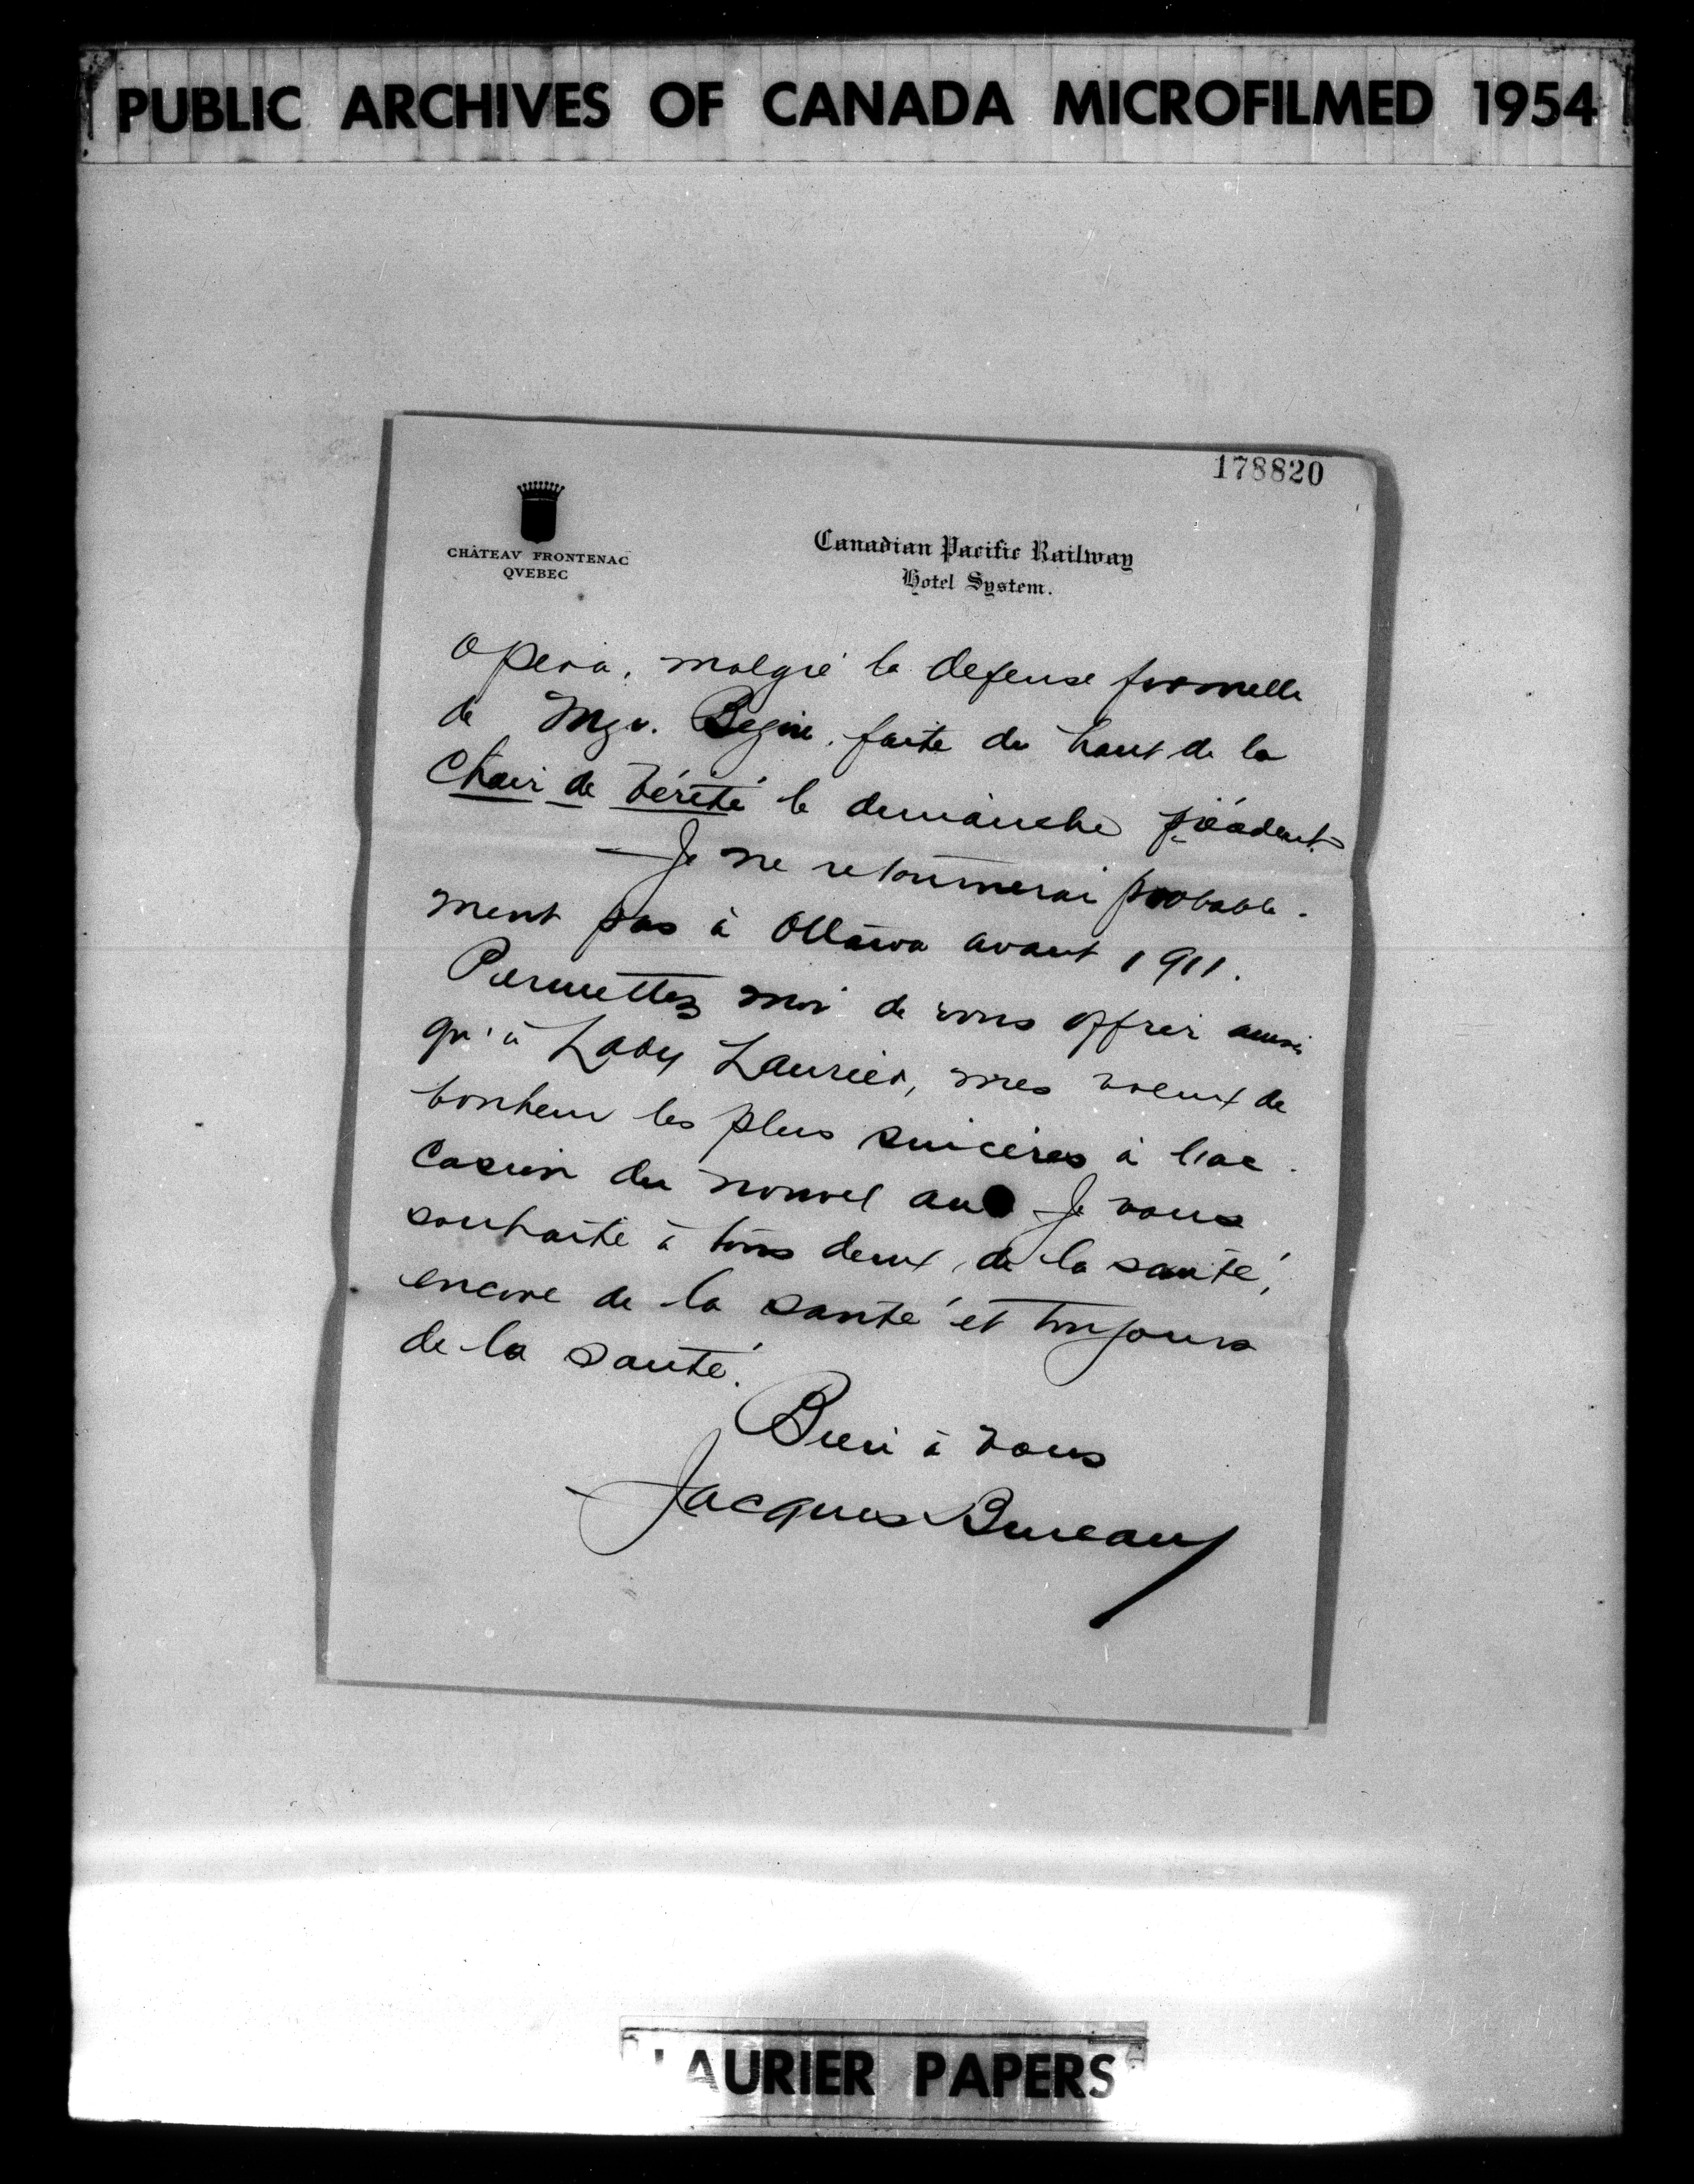 PUBLIC ARCHIVES OF CANADA MICROFILMED 1954
178820
CHÂTEAV FRONTENAC
QVEBEC
Canadian Pacific Railway
Hotel System.
Opera, malgré la defense formelle
de Mgr. Begin, faite du haut de la
Chair de Vérité le dimanche précédent.
— Je ne retournerai probable-
ment pas à Ottawa avant 1911.
Permettez moi de vous offrir ainsi
qu'à Lady Laurier, mes voeux de
bonheur les plus sincères à l'oc-
casion du nouvel an. Je vous
souhaite à tous deux, de la santé,
encore de la santé et toujours
de la santé.
Bien à vous
Jacques Bureau
LAURIER PAPERS